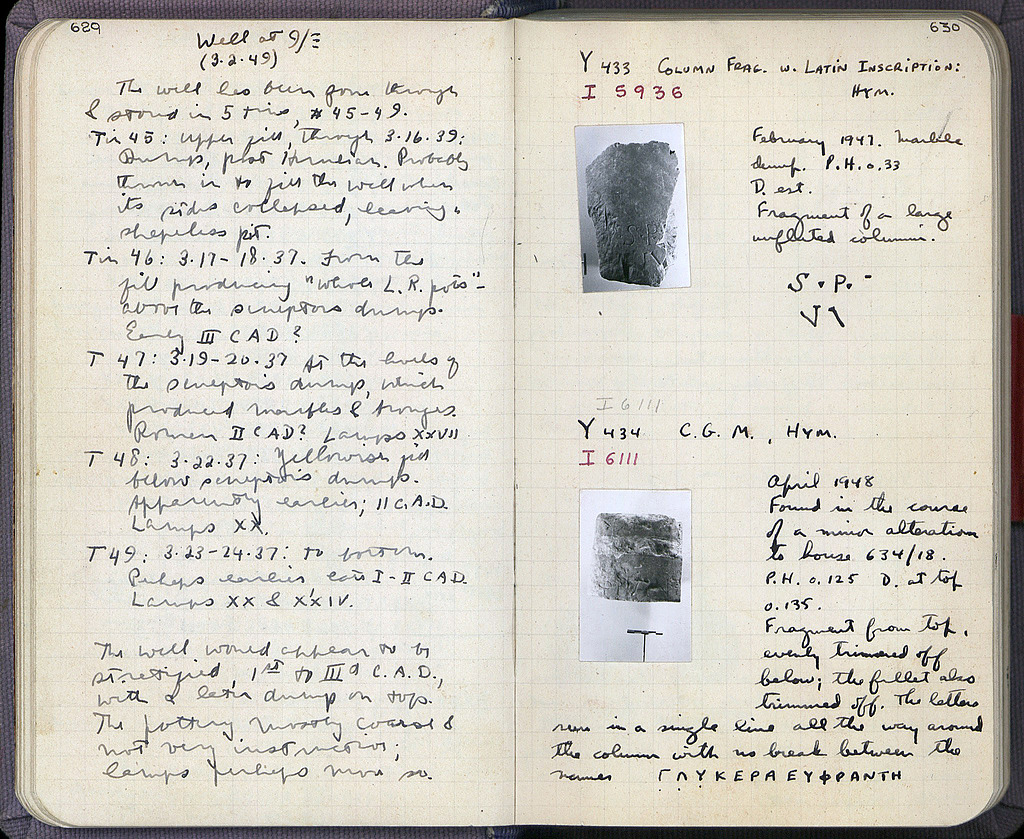 629
Well at 9/Ξ
(3.2.49)
The well has been gone through
& stored in 5 tins, #45-49.
Tin 45: Upper fill, through 3.16.39:
Dump, post Herulian. Probably
thrown in to fill the well when
its sides collapsed, leaving a
shapeless pit.
Tin 46: 3.17-18.37. From the
fill producing "whole L.R. pots"-
above the sculptors dumps.
Early III C AD?
T 47: 3.19-20.37 At the levels of
the sculptors dumps, which
produced marbles & bronzes.
Roman II C AD? Lamps XXVII
T 48: 3.22.37: Yellowish fill
below sculptors dumps.
Apparently earlier; II C. A.D.
Lamps XX.
T 49: 3.23-24.37: to bottom.
Perhaps earlier late I-II C AD.
Lamps XX & XXIV.
The well would appear to be
stratified, 1st to IIId C. A.D.,
with a later dump on top.
The pottery mostly coarse &
not very instructive;
lamps perhaps more so.
630
Y 433 COLUMN FRAG. W. LATIN INSCRIPTION:
I 5936 HYM.
February 1947. Marble
dump. P.H. 0.33
D. est.
Fragment of a large
unfluted column.
S . P. -
V \
I 6111
Y 434 C.G.M., HYM.
I 6111
April 1948
Found in the course
of a minor alteration
to house 634/18.
P.H. 0.125 D. at top
0.135.
Fragment from top,
evenly trimmed off
below; the fillet also
trimmed off. The letters
run in a single line all the way around
the column with no break between the
names ΓΛΥΚΕΡΑ ΕΥΦΡΑΝΤΗ